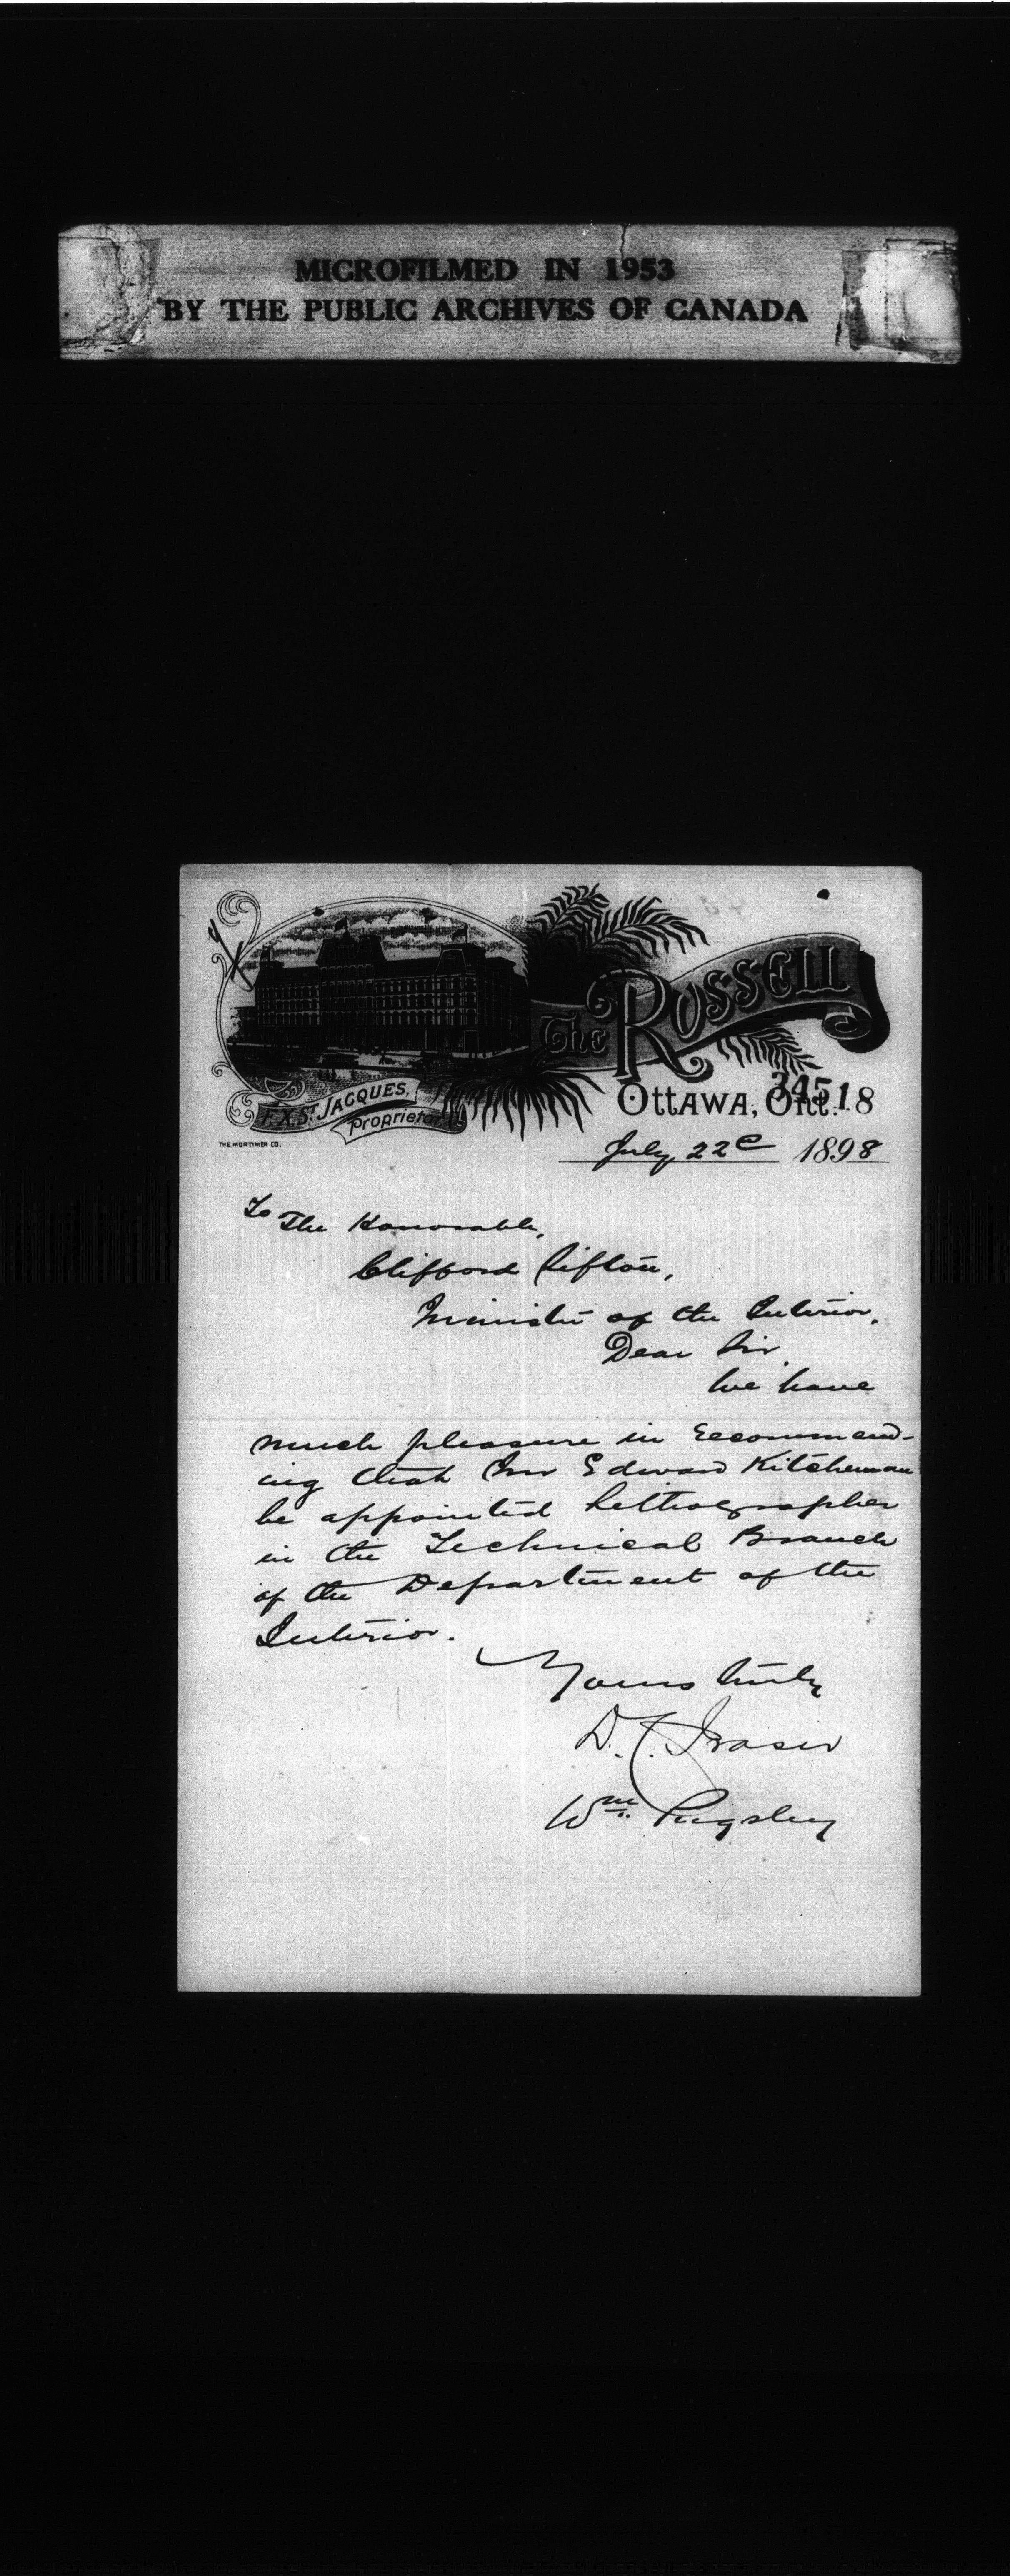 MICROFILMED IN 1953
BY THE PUBLIC ARCHIVES OF CANADA
The RUSSELL
F.X. ST. JACQUES,
Proprietor
THE MORTIMER CO.
34518
OTTAWA, Ont.
July 22e 1898
To The Honorable,
Clifford Sifton,
Minister of the Interior,
Dear Sir,
We have
much pleasure in recommend-
ing that Mr Edward Kitcheman
be appointed Lithographer
in the Technical Branch
of the Department of the
Interior.
Yours truly
D. C. Fraser
Wm Pugsley